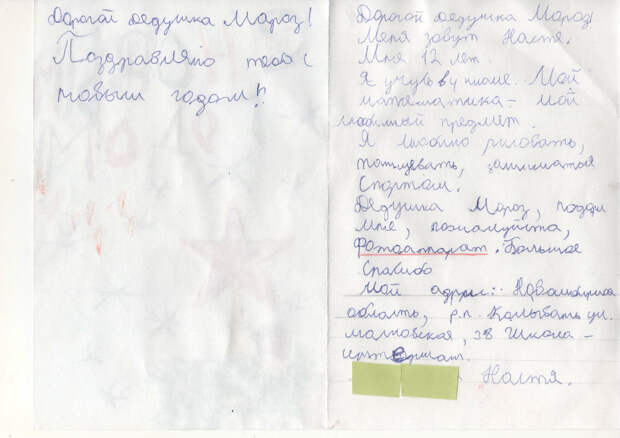 Дорогой дедушка Мороз!
Поздравляю тебя с
новым годом!!
Дорогой дедушка Мороз!
Меня зовут Настя.
Мне 12 лет.
Я учусь в у классе. Мой
математика – мой
любимый предмет.
Я люблю рисовать,
танцевать, заниматься
Спортом.
Дедушка Мороз, подари
мне, пожалуйста,
фотоаппарат. Большое
Спасибо
Мой адрес: Новосибирская
область, р.п. Колывать ул.
маяковская, Школа –
интернат.
Настя.